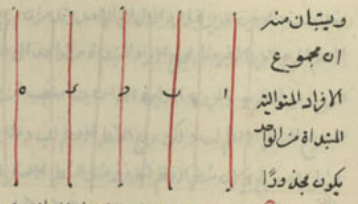 ويستبان منه
ان مجموع
الافراد المتوالية
المبتدأة من الواحد
يكون مجذورًا